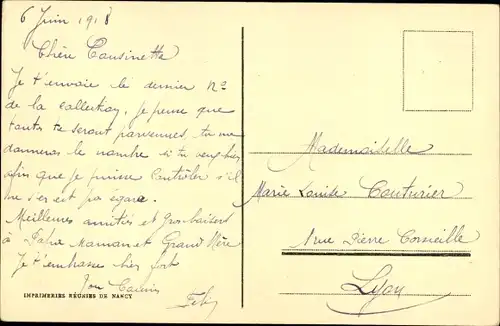 6 Juin 1918
Chère Cousinette
Je t'envoie le dernier No
de la collection, je pense que
toutes te seront parvenues, tu me
donneras le nombre si tu veux bien
afin que je puisse contrôler s'il
ne s'en est pas égaré.
Meilleures amitiés et gros baisers
à Papa Maman et Grand Mère
Je t'embrasse bien fort
Ton Cousin
IMPRIMERIES RÉUNIES DE NANCY
Mademoiselle
Marie Louise Couturier
1 rue Pierre Corneille
Lyon